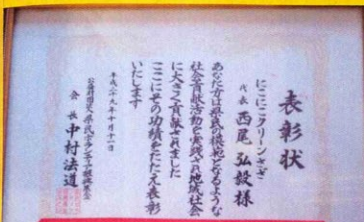 表彰状
にこにこクリーンさざ
代表 西尾 弘毅 様
あなた方は県民の模範となるような
社会貢献活動を実践され地域社会
に大きく貢献されました
ここにその功績をたたえ表彰
いたします
平成二十九年十月十一日
公益財団法人県民ボランティア振興基金
会長 中村法道